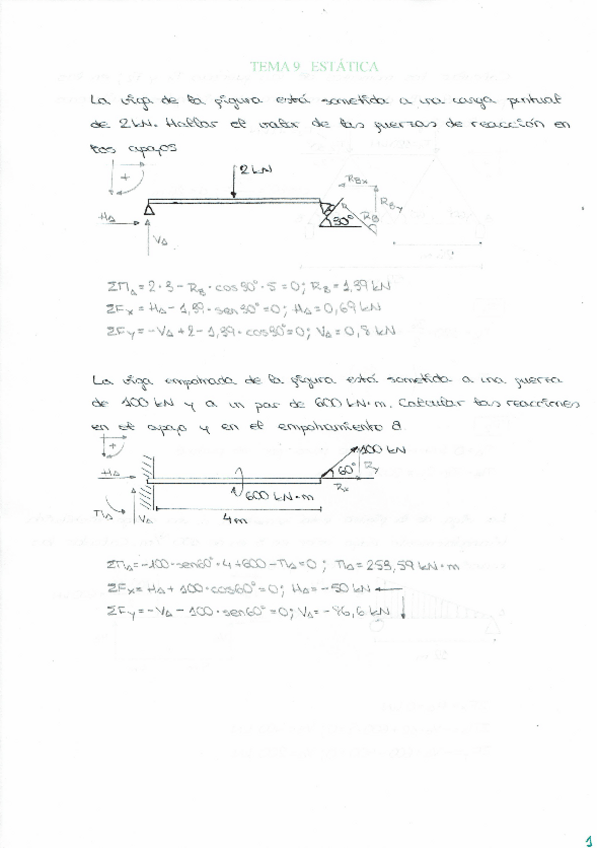 TEMA 9 ESTÁTICA
La viga de la figura está sometida a una carga puntual
de 2 kN. Hallar el valor de las fuerzas de reacción en
los apoyos
+
2 kN
R_Bx
R_By
R_B
30°
H_A
V_A
ΣM_A = 2 · 3 - R_B · cos30° · 5 = 0; R_B = 1,39 kN
ΣF_x = H_A - 1,39 · sen30° = 0; H_A = 0,69 kN
ΣF_y = -V_A + 2 - 1,39 · cos30° = 0; V_A = 0,8 kN
La viga empotrada de la figura está sometida a una fuerza
de 100 kN y a un par de 600 kN·m. Calcular las reacciones
en el apoyo y en el empotramiento
+
100 kN
60°
R_y
R_x
H_A
600 kN·m
M_A
V_A
4m
ΣM_A = -100 · sen60° · 4 + 600 - M_A = 0; M_A = 253,59 kN·m
ΣF_x = H_A + 100 · cos60° = 0; H_A = -50 kN ←
ΣF_y = -V_A - 100 · sen60° = 0; V_A = -86,6 kN ↓
1